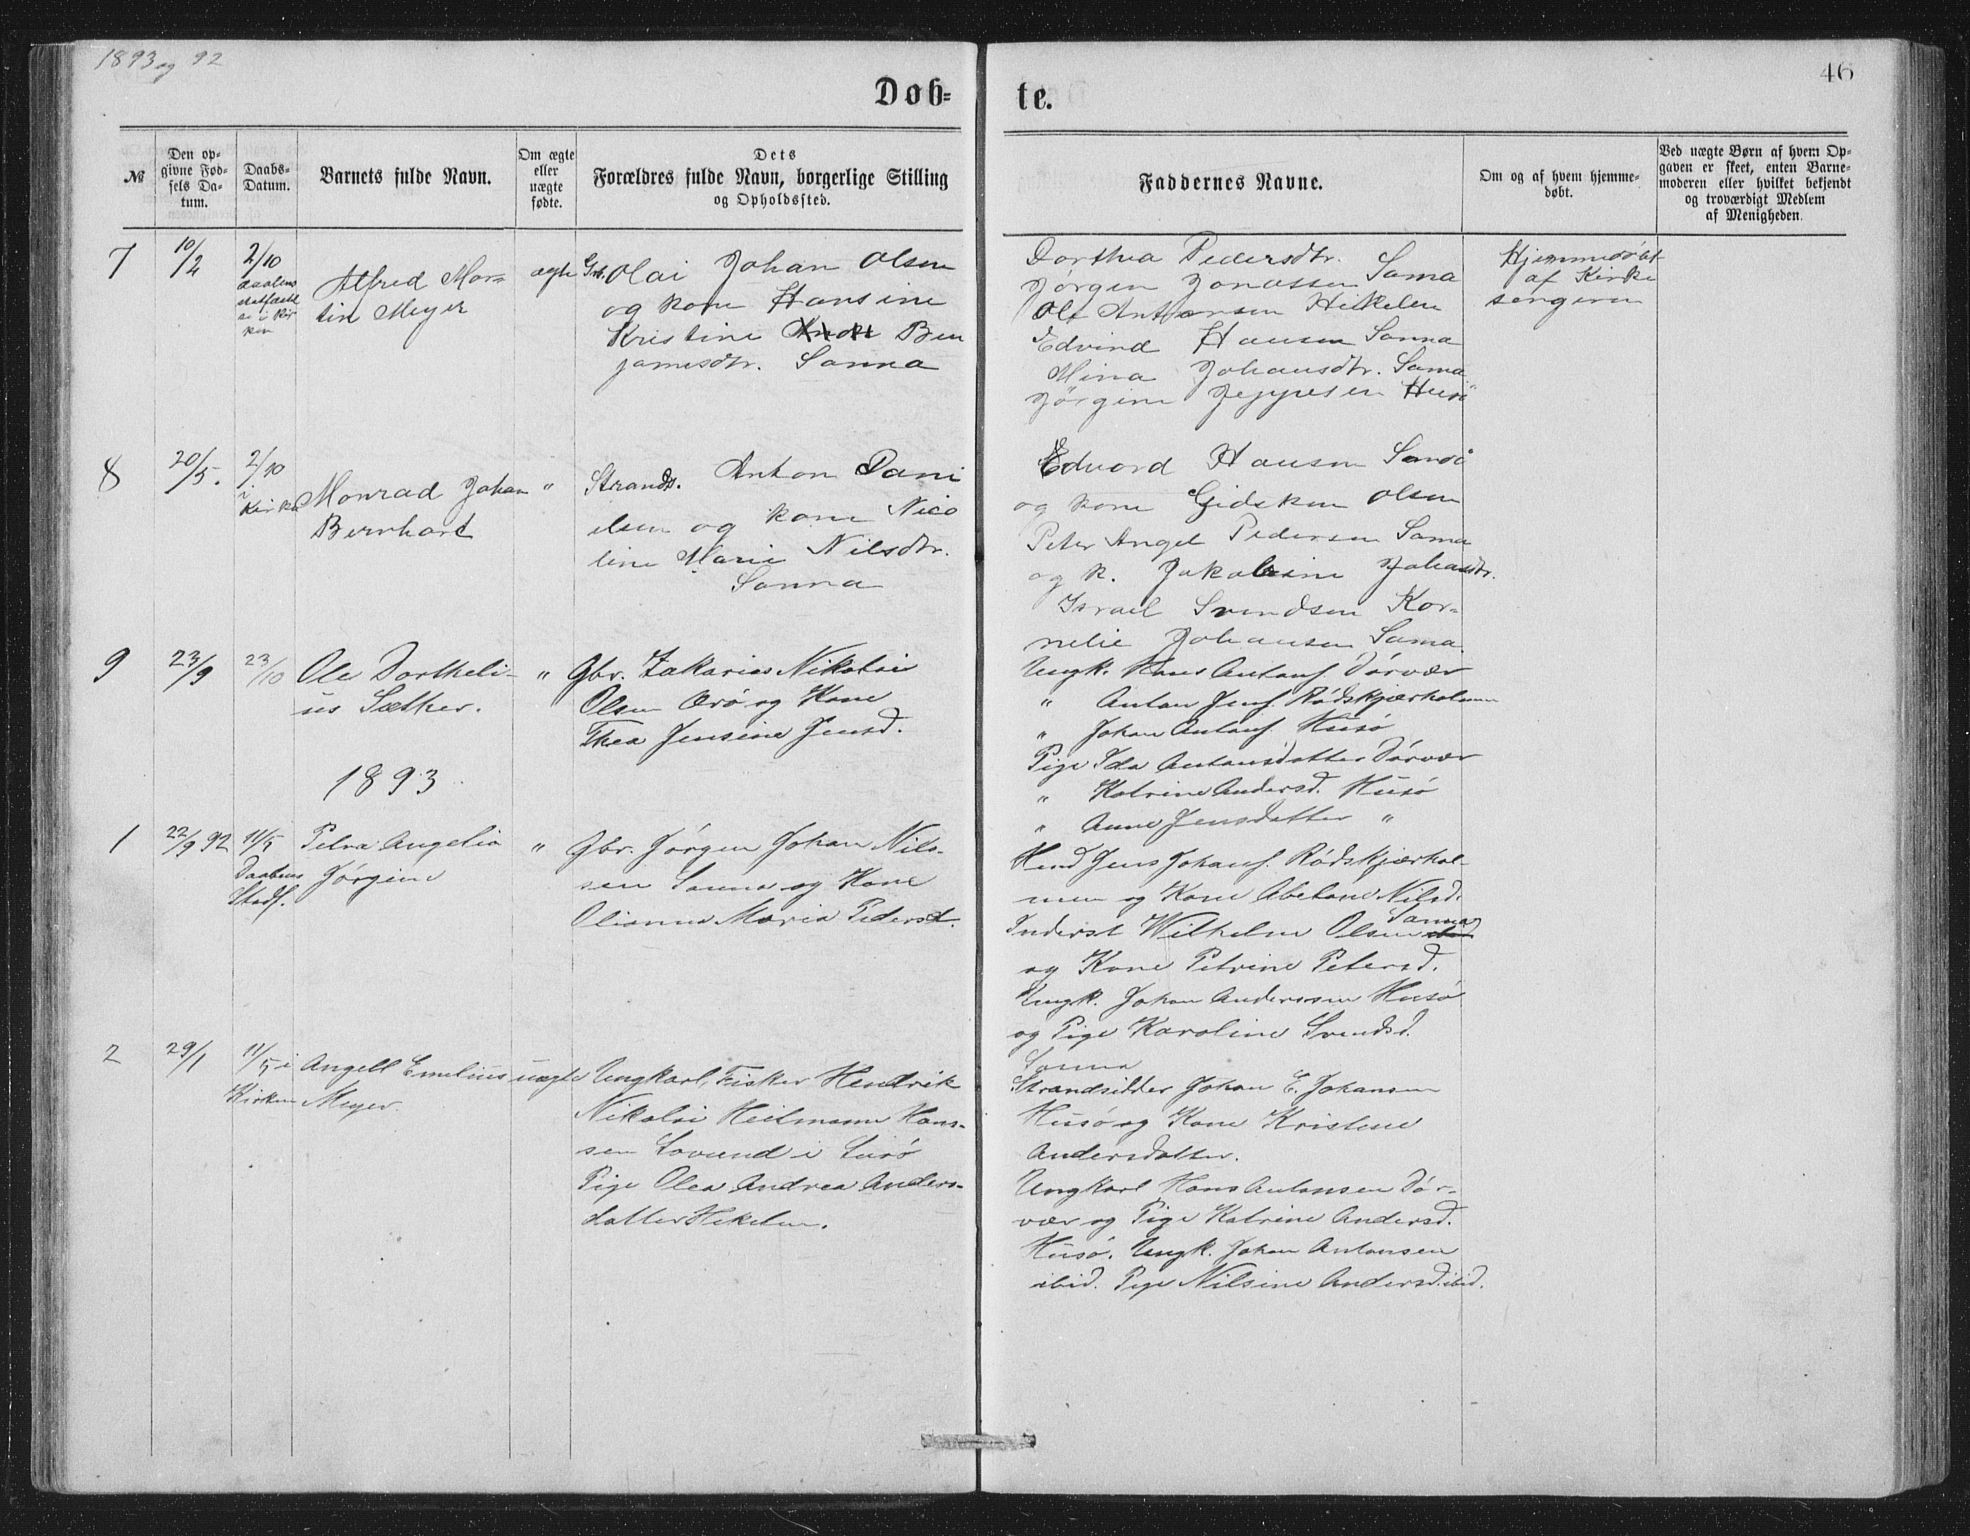 1893 og 92
46
Døb-
te.
№
Den op-
givne Fød-
sels Da-
tum.
Daabs-
Datum.
Barnets fulde Navn.
Om ægte
eller
uægte
fødte.
Dets
Forældres fulde Navn, borgerlige Stilling
og Opholdssted.
Faddernes Navne.
Om og af hvem hjemme-
døbt.
Ved uægte Børn af hvem Op-
gaven er skeet, enten Barne-
moderen eller hvilket bekjendt
og troværdigt Medlem
af Menigheden.
7
10/2
2/10
Alfred Mor-
tin Meyer
ægte
Gbr. Olai Johan Olsen
og kone Hansine
Kristine Ben
jamsdtr. Sanna
Dorthea Pedersdtr.
Jørgen Jonassen Sanna
Ole Antonsen Hikelen
Edvind Hansen Sanna
Mina Johansdtr. Sanna
Jørgine Jeppesen Husø
Hjemmedøbt
af Kirke
sangeren
8
20/5.
2/10
i
Kirke
Monrad Johan
Bernhart
"
Strands. Anton Dani
elsen og kone Nico
line Marie Nilsdtr.
Sanna
Edvard Hansen
og kone Gidsken Olsen
Peter Angel Pedersen Sanna
og k. Jakobine Johansdtr.
Israel Svendsen Kor-
nelie Johansen Sanna
9
23/9
23/10
Ole Dortheli-
us Sæther.
"
Gbr. Zakarias Nikolai
Olsen Ørø og Kone
Thea Jensine Jensd.
Ungk. Hans Antons. Dørvær
" Anton Jens. Rødskjærholmen
" Johan Antons. Husø
Pige Ida Antonsdatter Dørvær
" Katrine Andersd. Husø
" Anne Jensdatter "
1893
1
22/9 92
11/5
Daabens
Stadf.
Petra Angelia
Jørgine
"
Gbr. Jørgen Johan Nils-
sen Sanna og Kone
Olianna Maria Pedersd.
Hmd Jens Johans. Rødskjærhol-
men og Kone Abelone Nilsd.
Inderst Wilhelm Olsen ibid Sanna
og Kone Petrine Petersd.
Ungk. Johan Anderssen Husø
og Pige Karoline Svendsd.
Sanna
2
29/1
11/5 i
Kirken
Angell Emelius
Meyer.
uægte
Ungkarl, Fisker Hendrik
Nikolai Heitmann Hans-
sen Lovund i Lurø
Pige Olea Andrea Anders-
datter Hikelen.
Strandsidder Johan E. Johansen
Husø og Kone Kristine
Andersdatter.
Ungkarl Hans Antonsen Dør-
vær og Pige Katrine Andersd.
Husø. Ungk. Johan Antonsen
ibid. Pige Nilsine Andersd. ibid.